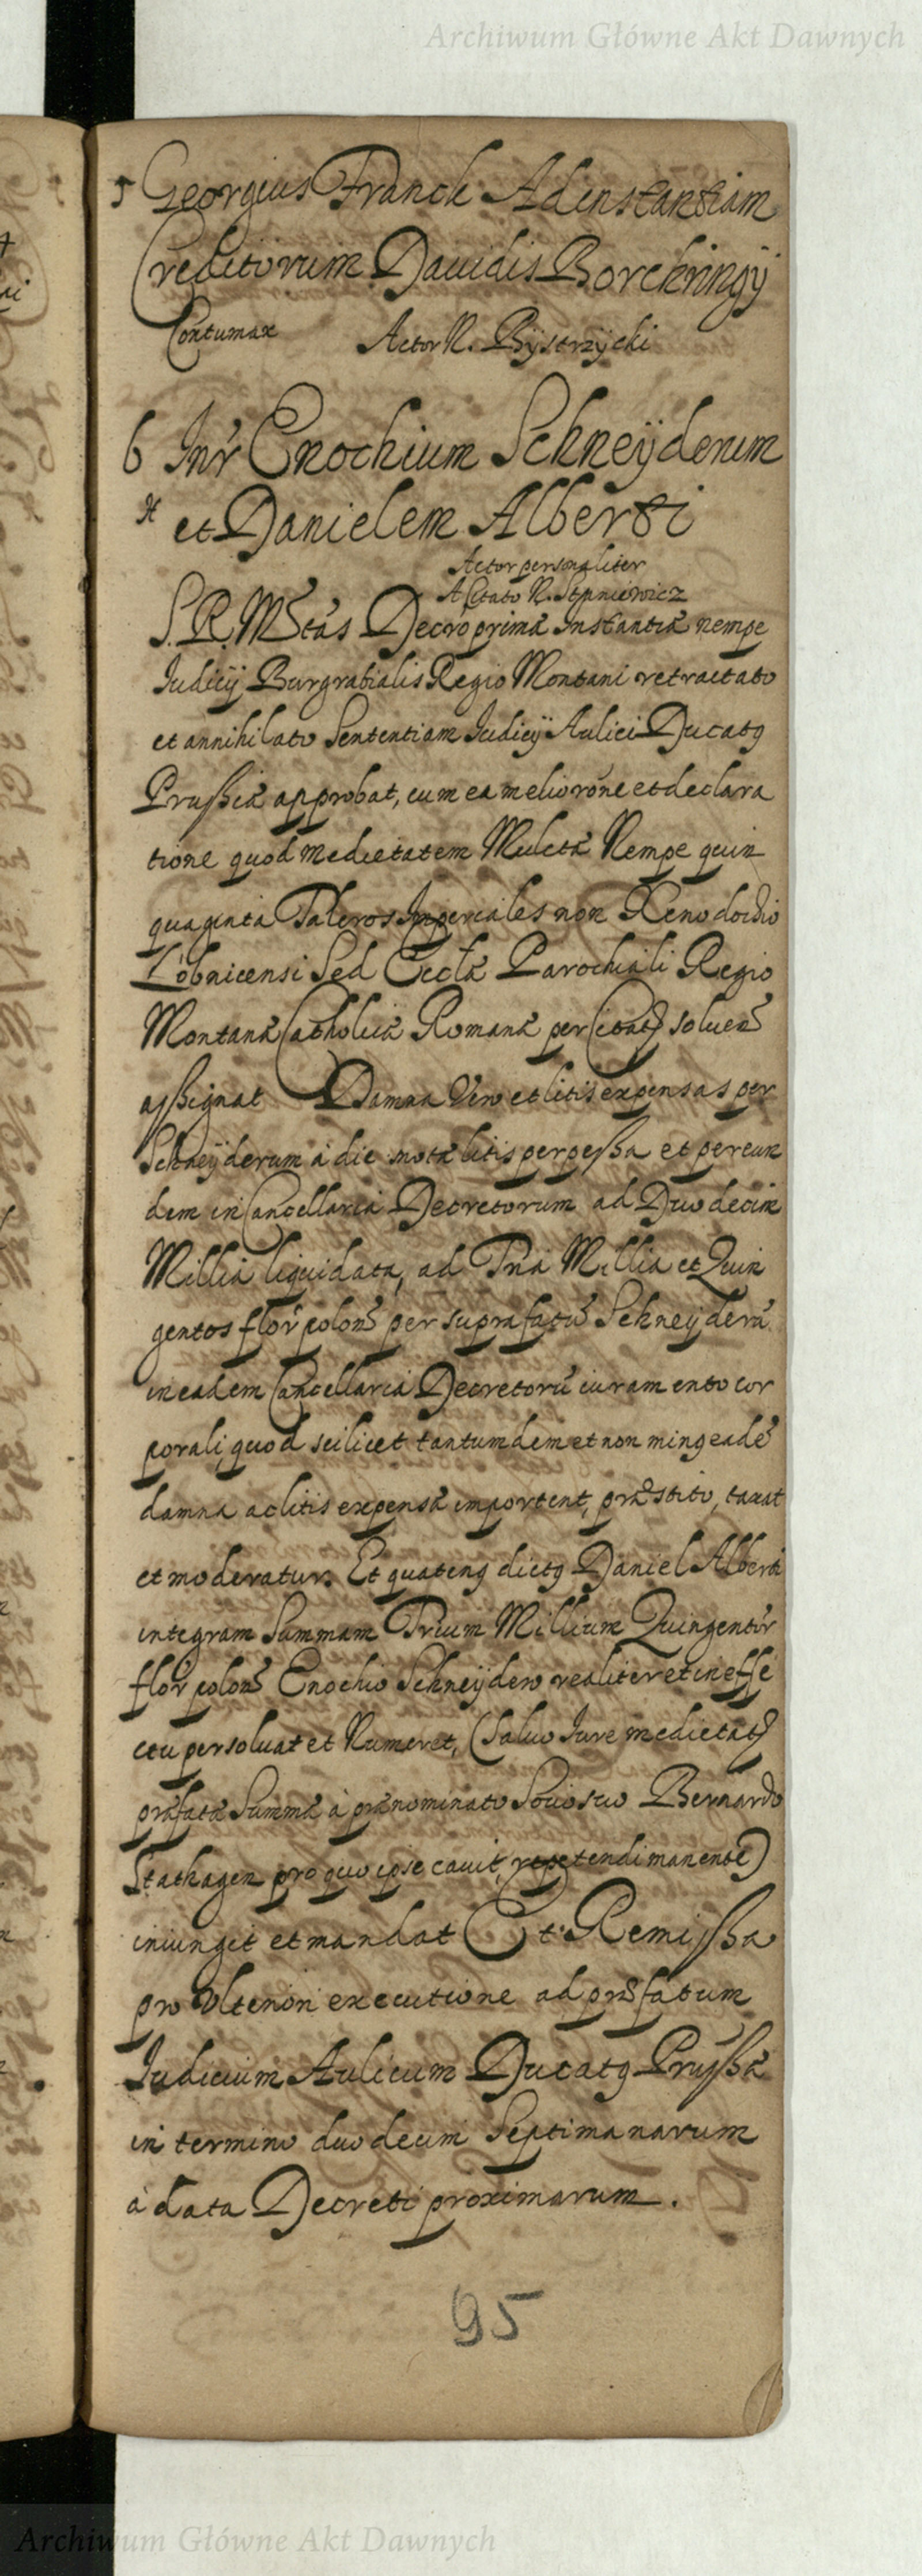 Archiwum Główne Akt Dawnych
5 Georgius Franck Ad instantiam
Creditorum Dauidis Borckringij
Contumax Actor N. Bystrzycki
6 Intr Enochium Schneÿderum
et Danielem Alberti
Actor personaliter
A Citato N. Stpniewicz
S. R. Mtas Decro primæ Instantiæ nempe
Iudicij Burgrabialis Regio Montani retractato
et annihilato Sententiam Iudicÿ Aulici Ducatq
Prußiæ approbat, cum ea meliorõne et declara
tione quod medietatem Mulctæ Nempe quin
quaginta Taleros Imperiales non Xenodochio
Lobnicensi Sed Eccłæ Parochiali Regio
Montanæ Catholicæ Romanæ per Citat soluen
assignat Damna Vero et litis expensas per
Schneÿderum à die motæ litis perpeßa et per eun
dem in Cancellaria Decretorum ad Duodecim
Millia liquidata, ad Tria Millia et Quin
gentos flor polon per suprafatũ Schneyderũ
in eadem Cancellaria Decretorũ iuramento cor
porali, quod scilicet tantumdem et non minq eadẽ
damna ac litis expensæ important, præstito, taxat
et moderatur. Et quatenq dictq Daniel Alberti
integram Summam Trium Millium Quingentor
flor polon Enochio Schneÿdero realiter et in effe
ctu persoluat et Numeret, (saluo Iure medietat
præfatæ Summæ à prænominato Socio suo Bernardo
Stathagen pro quo ipse cauit, repetendi manente)
iniungit et mandat Et Remißa
pro Vlteriori executione ad præfatum
Iudicium Aulicum Ducatq Prußiæ
in termino duodecim Septimanarum
à data Decreti proximarum.
95
Archiwum Główne Akt Dawnych